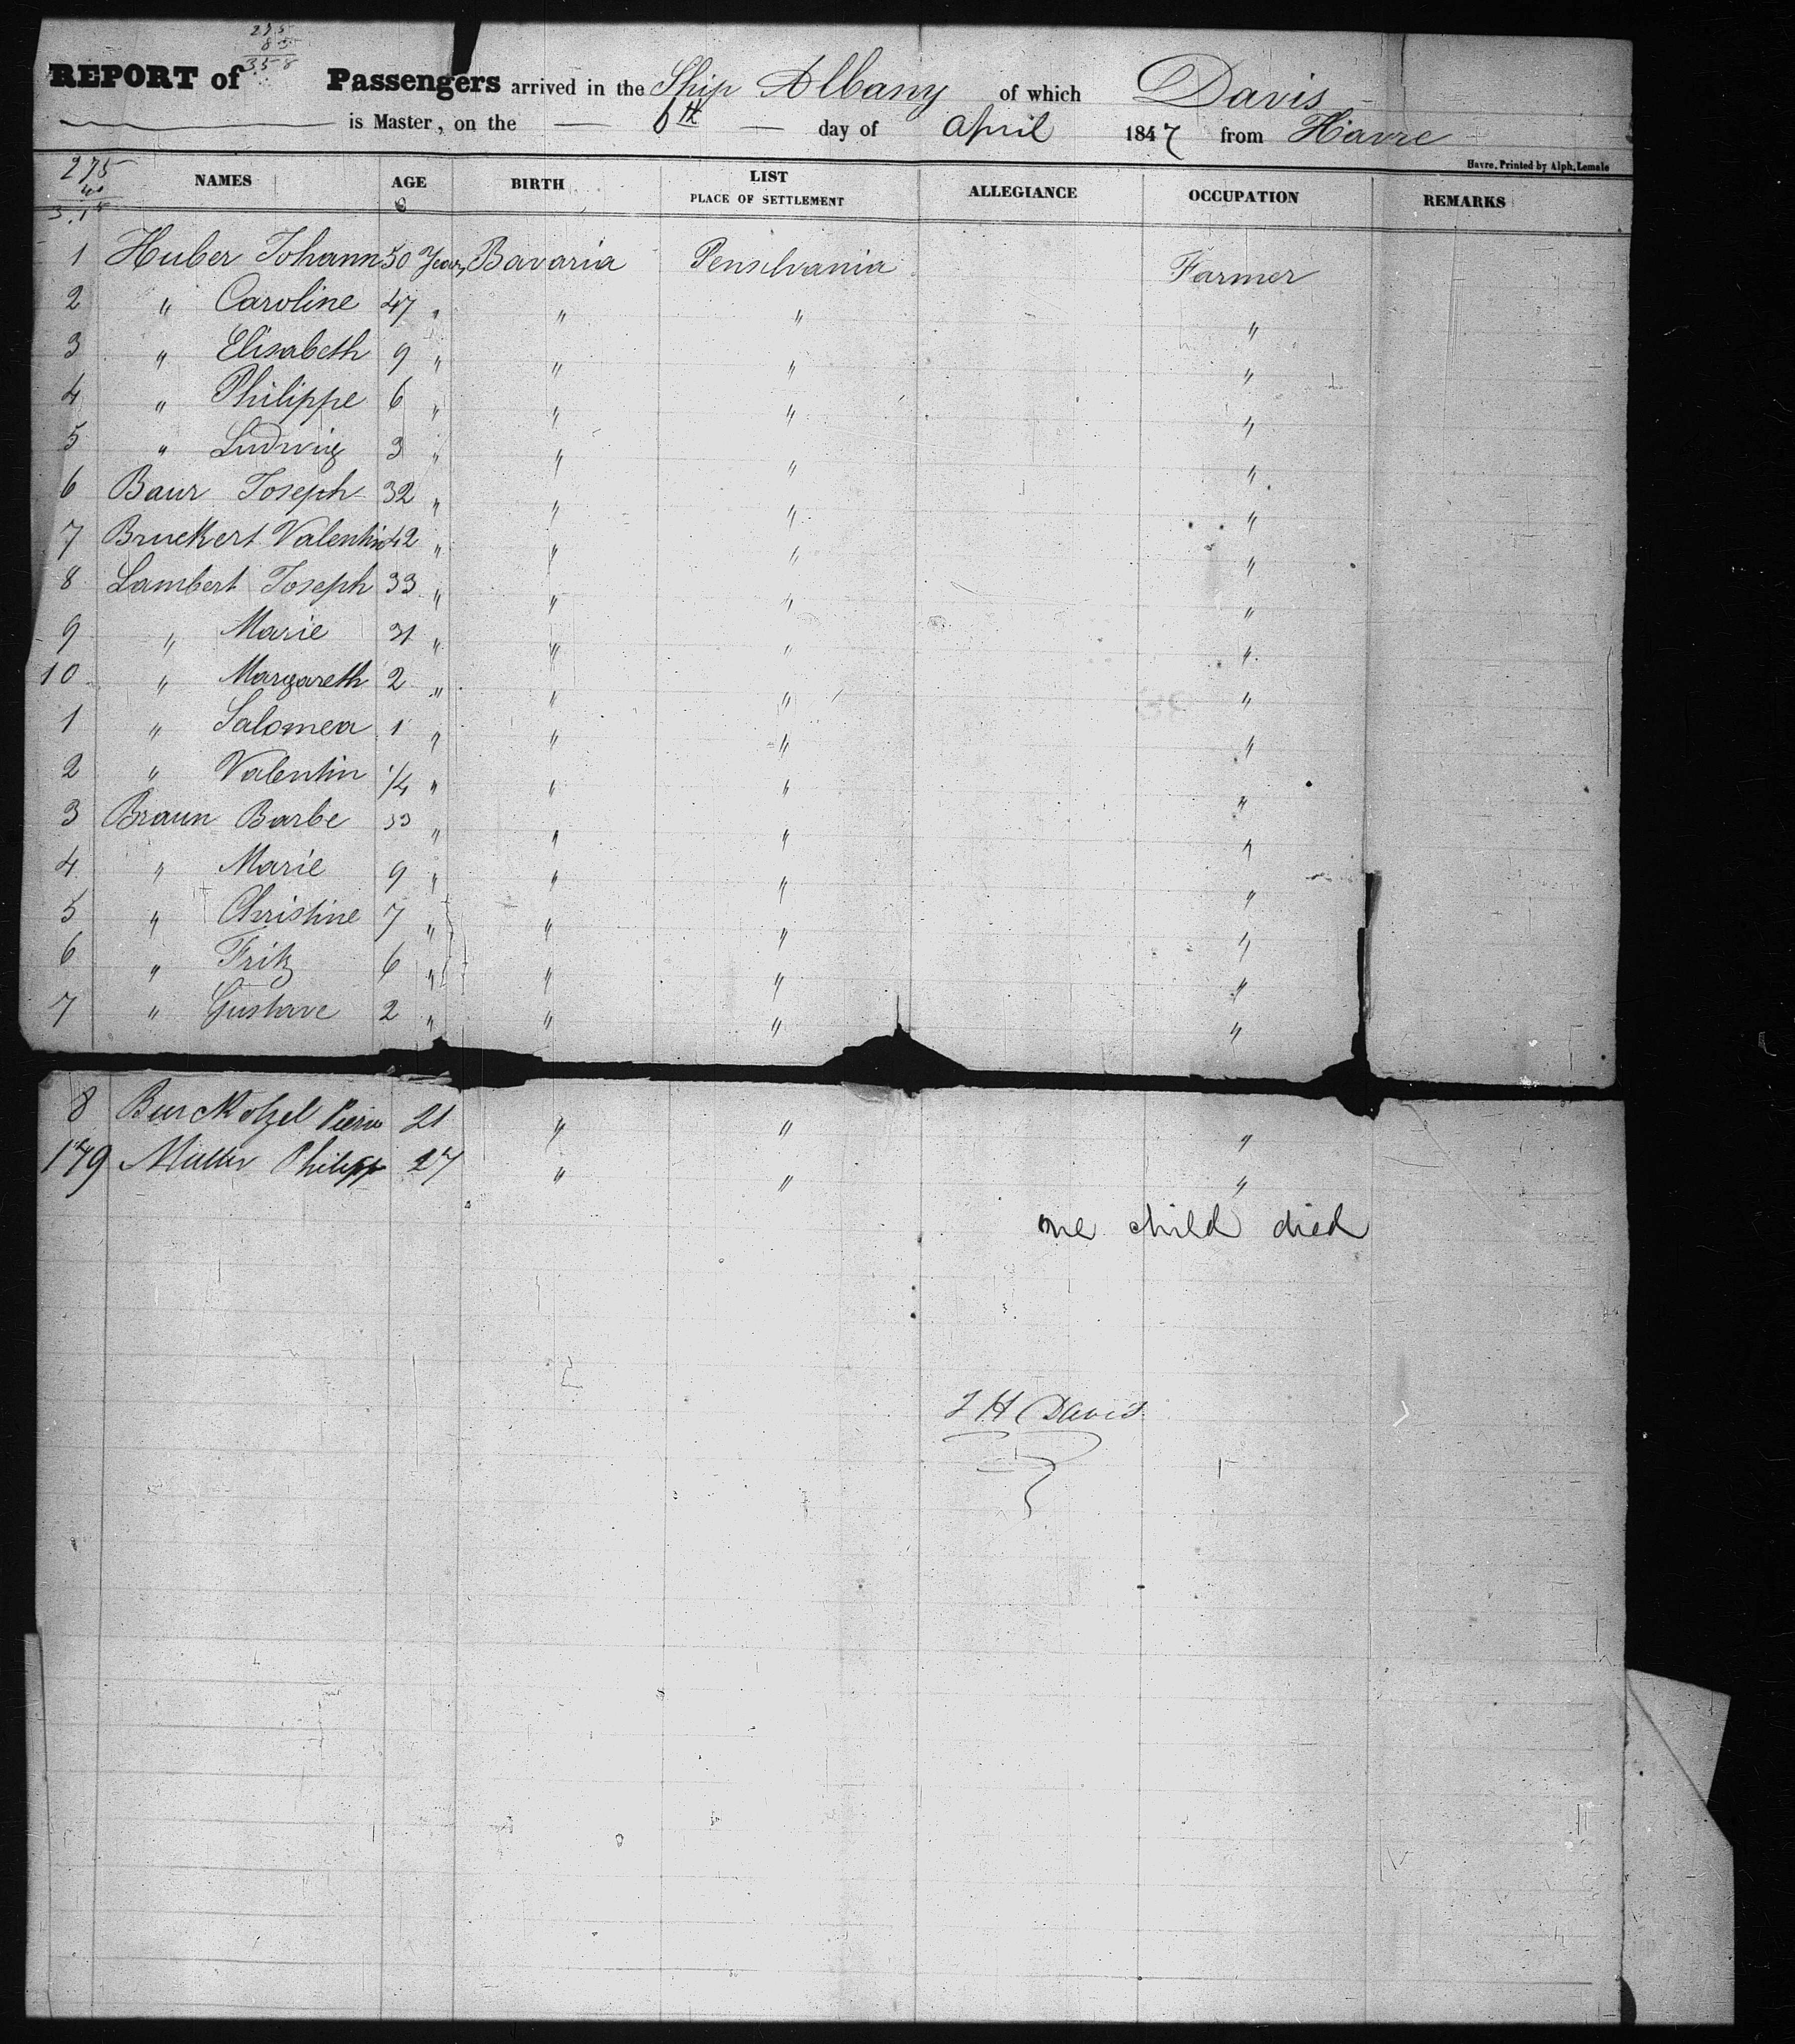 275
85
358
REPORT of Passengers arrived in the Ship Albany of which Davis
is Master, on the 6th day of April 1847 from Havre
Havre, Printed by Alph. Lemale
275
40
NAMES AGE BIRTH LIST PLACE OF SETTLEMENT ALLEGIANCE OCCUPATION REMARKS
1 Huber Johann 50 Years Bavaria Pensilvania Farmer
2 " Caroline 47 " " " "
3 " Elisabeth 9 " " " "
4 " Philippe 6 " " " "
5 " Ludwig 3 " " " "
6 Baur Joseph 32 " " " "
7 Bruckert Valentin 42 " " " "
8 Lambert Joseph 33 " " " "
9 " Marie 31 " " " "
10 " Margareth 2 " " " "
1 " Salomea 1 " " " "
2 " Valentin 1/4 " " " "
3 Braun Barbe 33 " " " "
4 " Marie 9 " " " "
5 " Christine 7 " " " "
6 " Fritz 6 " " " "
7 " Gustave 2 " " " "
8 Pierre 21 " " "
Philipp 27 " " "
one child died
J H Davis